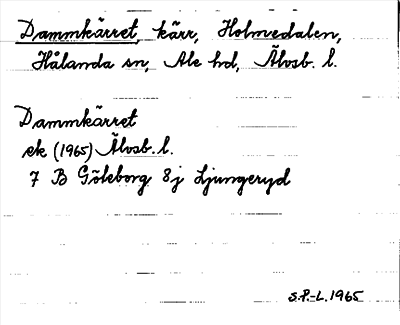 Dammkärret, kärr, Holmedalen,
Hålanda sn, Ale hd, Älvsb. l.
Dammkärret
ek (1965) Älvsb. l.
7 B Göteborg 8j Ljungeryd
S.P.-L. 1965